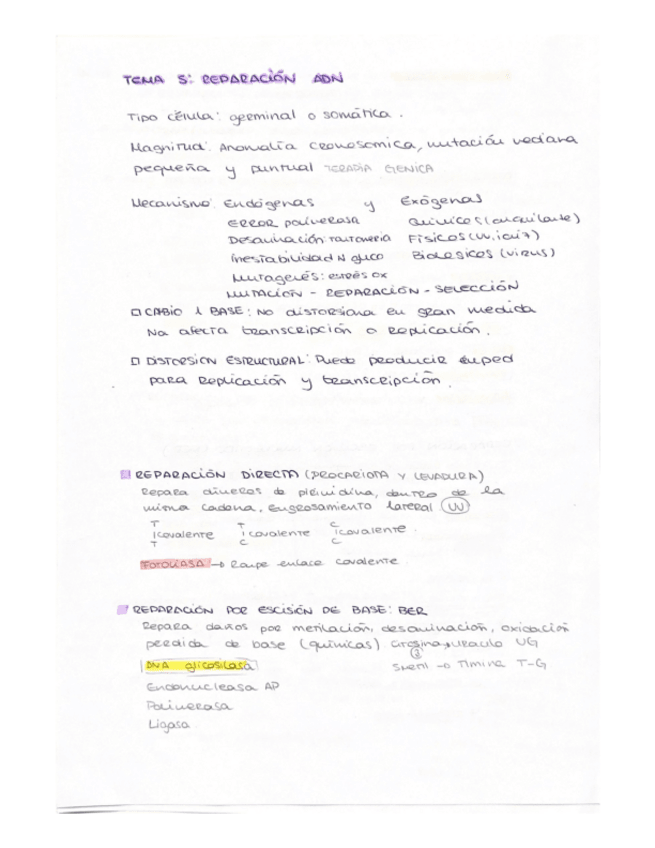 TEMA 5: REPARACIÓN ADN
Tipo célula: germinal o somática.
Magnitud: Anomalía cromosomica, mutación mediana
pequeña y puntual TERAPIA GENICA
Mecanismo: Endógenas y Exógenas
ERROR polimerasa Quimicos (alquilante)
Desaminación: tautomeria Físicos (UV, ioni
Inestabilidad N glico Biologicos (virus)
Mutagenés: estrés ox
MUTACIÓN - REPARACIÓN - SELECCIÓN
CABIO 1 BASE: No distorsiona en gran medida
No afecta transcripción o replicación.
DISTORSION ESTRUCTURAL: Puede producir
para replicación y transcripción.
REPARACIÓN DIRECTA (PROCARIOTA Y LEVADURA)
Repara dimeros de pirimidina, dentro de la
misma cadena, Engrosamiento lateral UV
T T C
| covalente | covalente | covalente
T C C
FOTOLIASA → Rompe enlace covalente.
REPARACIÓN POR ESCISIÓN DE BASE: BER
Repara daños por metilación, desaminación, oxidación
perdida de base (químicas) uracilo UG
DNA glicosilasa 5metil → Timina T-G
Endonucleasa AP
Polimerasa
Ligasa